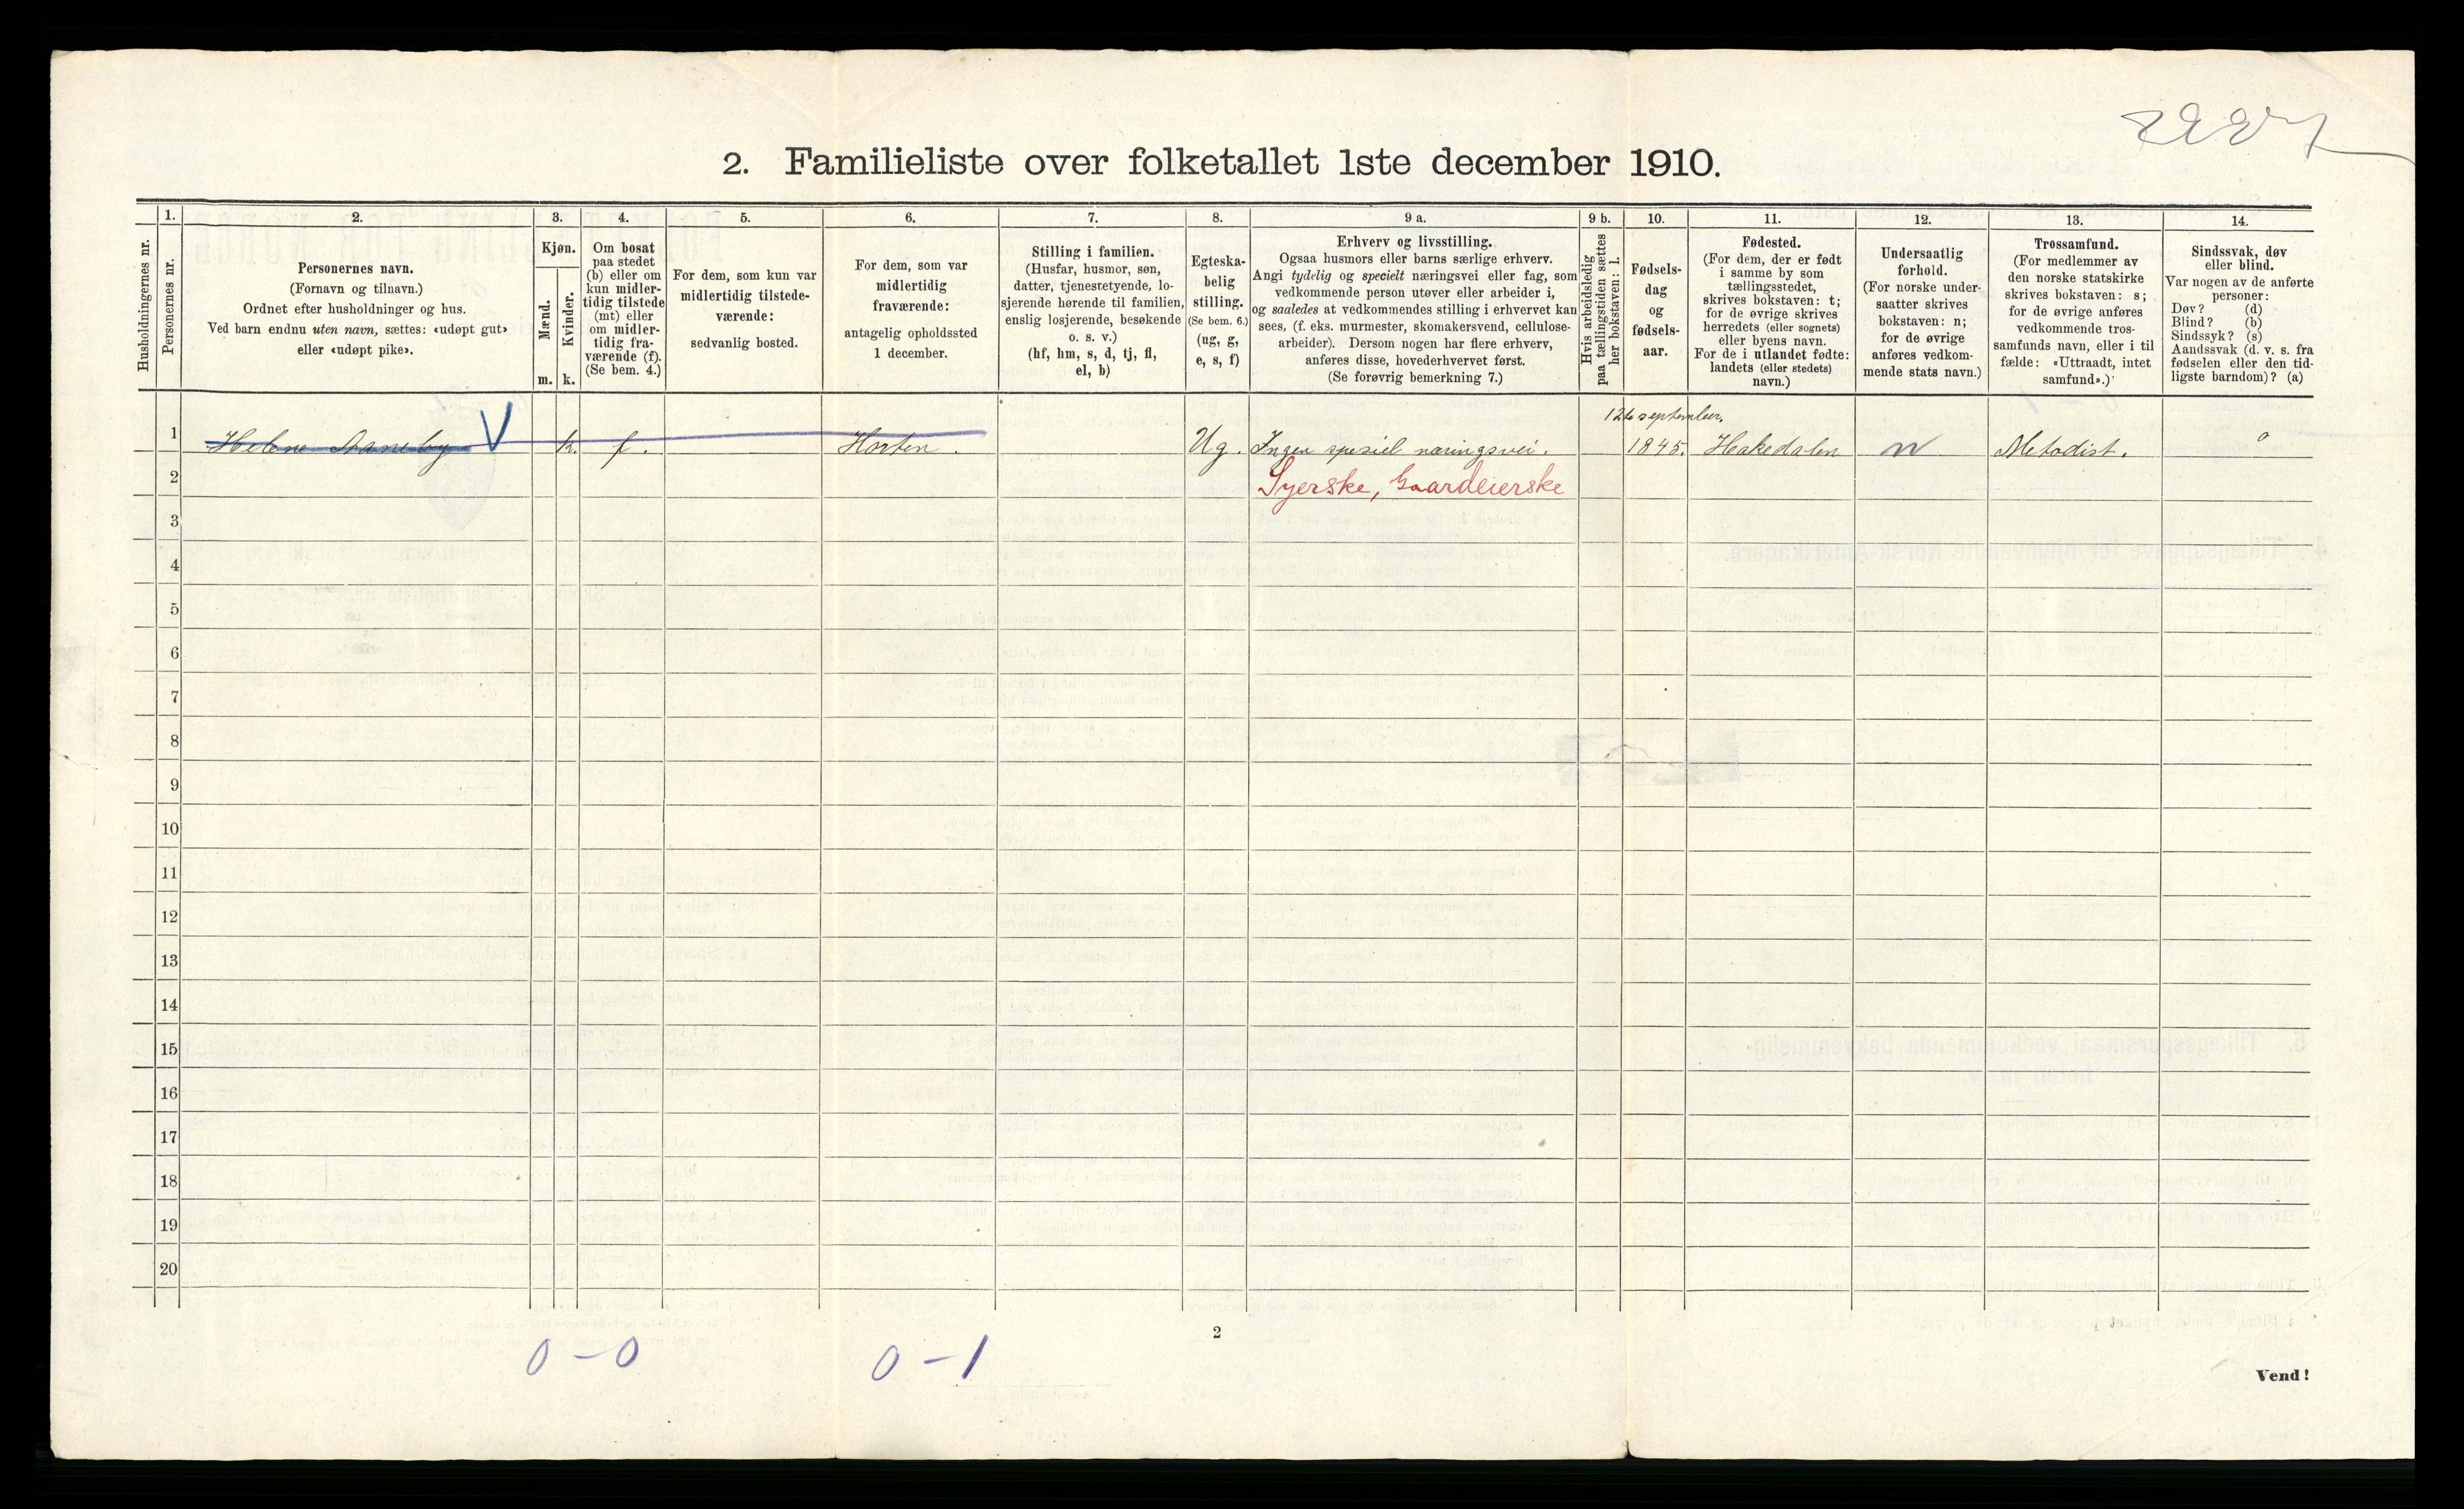 2. Familieliste over folketallet 1ste december 1910.
Husholdningernes nr.
1.
Personernes nr.
2.
Personernes navn.
(Fornavn og tilnavn.)
Ordnet efter husholdninger og hus.
Ved barn endnu uten navn, sættes: «udøpt gut»
eller «udøpt pike».
3.
Kjøn.
Mænd.
m.
Kvinder.
k.
4.
Om bosat
paa stedet
(b) eller om
kun midler-
tidig tilstede
(mt) eller
om midler-
tidig fra-
værende (f).
(Se bem. 4.)
5.
For dem, som kun var
midlertidig tilstede-
værende:
sedvanlig bosted.
6.
For dem, som var
midlertidig
fraværende:
antagelig opholdssted
1 december.
7.
Stilling i familien.
(Husfar, husmor, søn,
datter, tjenestetyende, lo-
sjerende hørende til familien,
enslig losjerende, besøkende
o. s. v.)
(hf, hm, s, d, tj, fl,
el, b)
8.
Egteska-
belig
stilling.
(Se bem. 6.)
(ug, g,
e, s, f)
9 a.
Erhverv og livsstilling.
Ogsaa husmors eller barns særlige erhverv.
Angi tydelig og specielt næringsvei eller fag, som
vedkommende person utøver eller arbeider i,
og saaledes at vedkommendes stilling i erhvervet kan
sees, (f. eks. murmester, skomakersvend, cellulose-
arbeider). Dersom nogen har flere erhverv,
anføres disse, hovederhvervet først.
(Se forøvrig bemerkning 7.)
9 b.
Hvis arbeidsledig
paa tællingstiden sættes
her bokstaven: l.
10.
Fødsels-
dag
og
fødsels-
aar.
11.
Fødested.
(For dem, der er født
i samme by som
tællingsstedet,
skrives bokstaven: t;
for de øvrige skrives
herredets (eller sognets)
eller byens navn.
For de i utlandet fødte:
landets (eller stedets)
navn.)
12.
Undersaatlig
forhold.
(For norske under-
saatter skrives
bokstaven: n;
for de øvrige
anføres vedkom-
mende stats navn.)
13.
Trossamfund.
(For medlemmer av
den norske statskirke
skrives bokstaven: s;
for de øvrige anføres
vedkommende tros-
samfunds navn, eller i til
fælde: «Uttraadt, intet
samfund».)
14.
Sindssvak, døv
eller blind.
Var nogen av de anførte
personer:
Døv? (d)
Blind? (b)
Sindssyk? (s)
Aandssvak (d. v. s. fra
fødselen eller den tid-
ligste barndom)? (a)
september.
1 Helene Aaneby k. f. Horten. Ug. Ingen spesiel næringsvei. 1845. Hakedalen n Metodist.
2 Syerske, Gaardeierske
3
4
5
6
7
8
9
10
11
12
13
14
15
16
17
18
19
20
2
0 - 0 0 - 1
Vend!